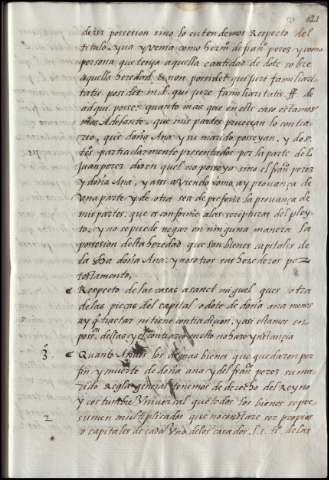 621
dezir posession sino lo entendemos Respecto del
titulo que venia como herm de fran perez y como
persona que tenia aquella cantidad de dote sobre
aquella heredad & non possidet qui jure familiaritatis
possidet in l. qui jure familiaritatis ff. de
adquir. posse. quanto mas que en este caso estamos
mas Adelante que mis partes provean lo contrario,
que doña Ana y su marido poseyan, y dos
particularmente presentados por la parte de
Juan perez dizen quel no poseyo sino el fran perez
y doña Ana, y assi aviendo como ay provança de
una parte y de otra sea de preferir la provança de
mis partes que es conforme a las escripturas del pleyto,
y no se puede negar en ninguna manera la
posesion desta heredad que son bienes capitales de
la dha doña Ana y nosotros sus herederos por
testamento.
Respecto de las casas a sanct miguel que es otra
de las pieças del capital o dote de doña ana menos
ay que tractar ni tiene contradiçion, y assi estamos en
posesion dellas y el contrario mucho no haze ynstancia
3 Quanto A todos los demas bienes que quedaron por
fin y muerte de doña ana y del fran perez su marido
Regla general tenemos de derecho del Reyno
y costumbre Universal que todos los bienes se presumen
multiplicados que no constare ser proprios
2 o capitales de cada Uno de los casados. l. 1. de las